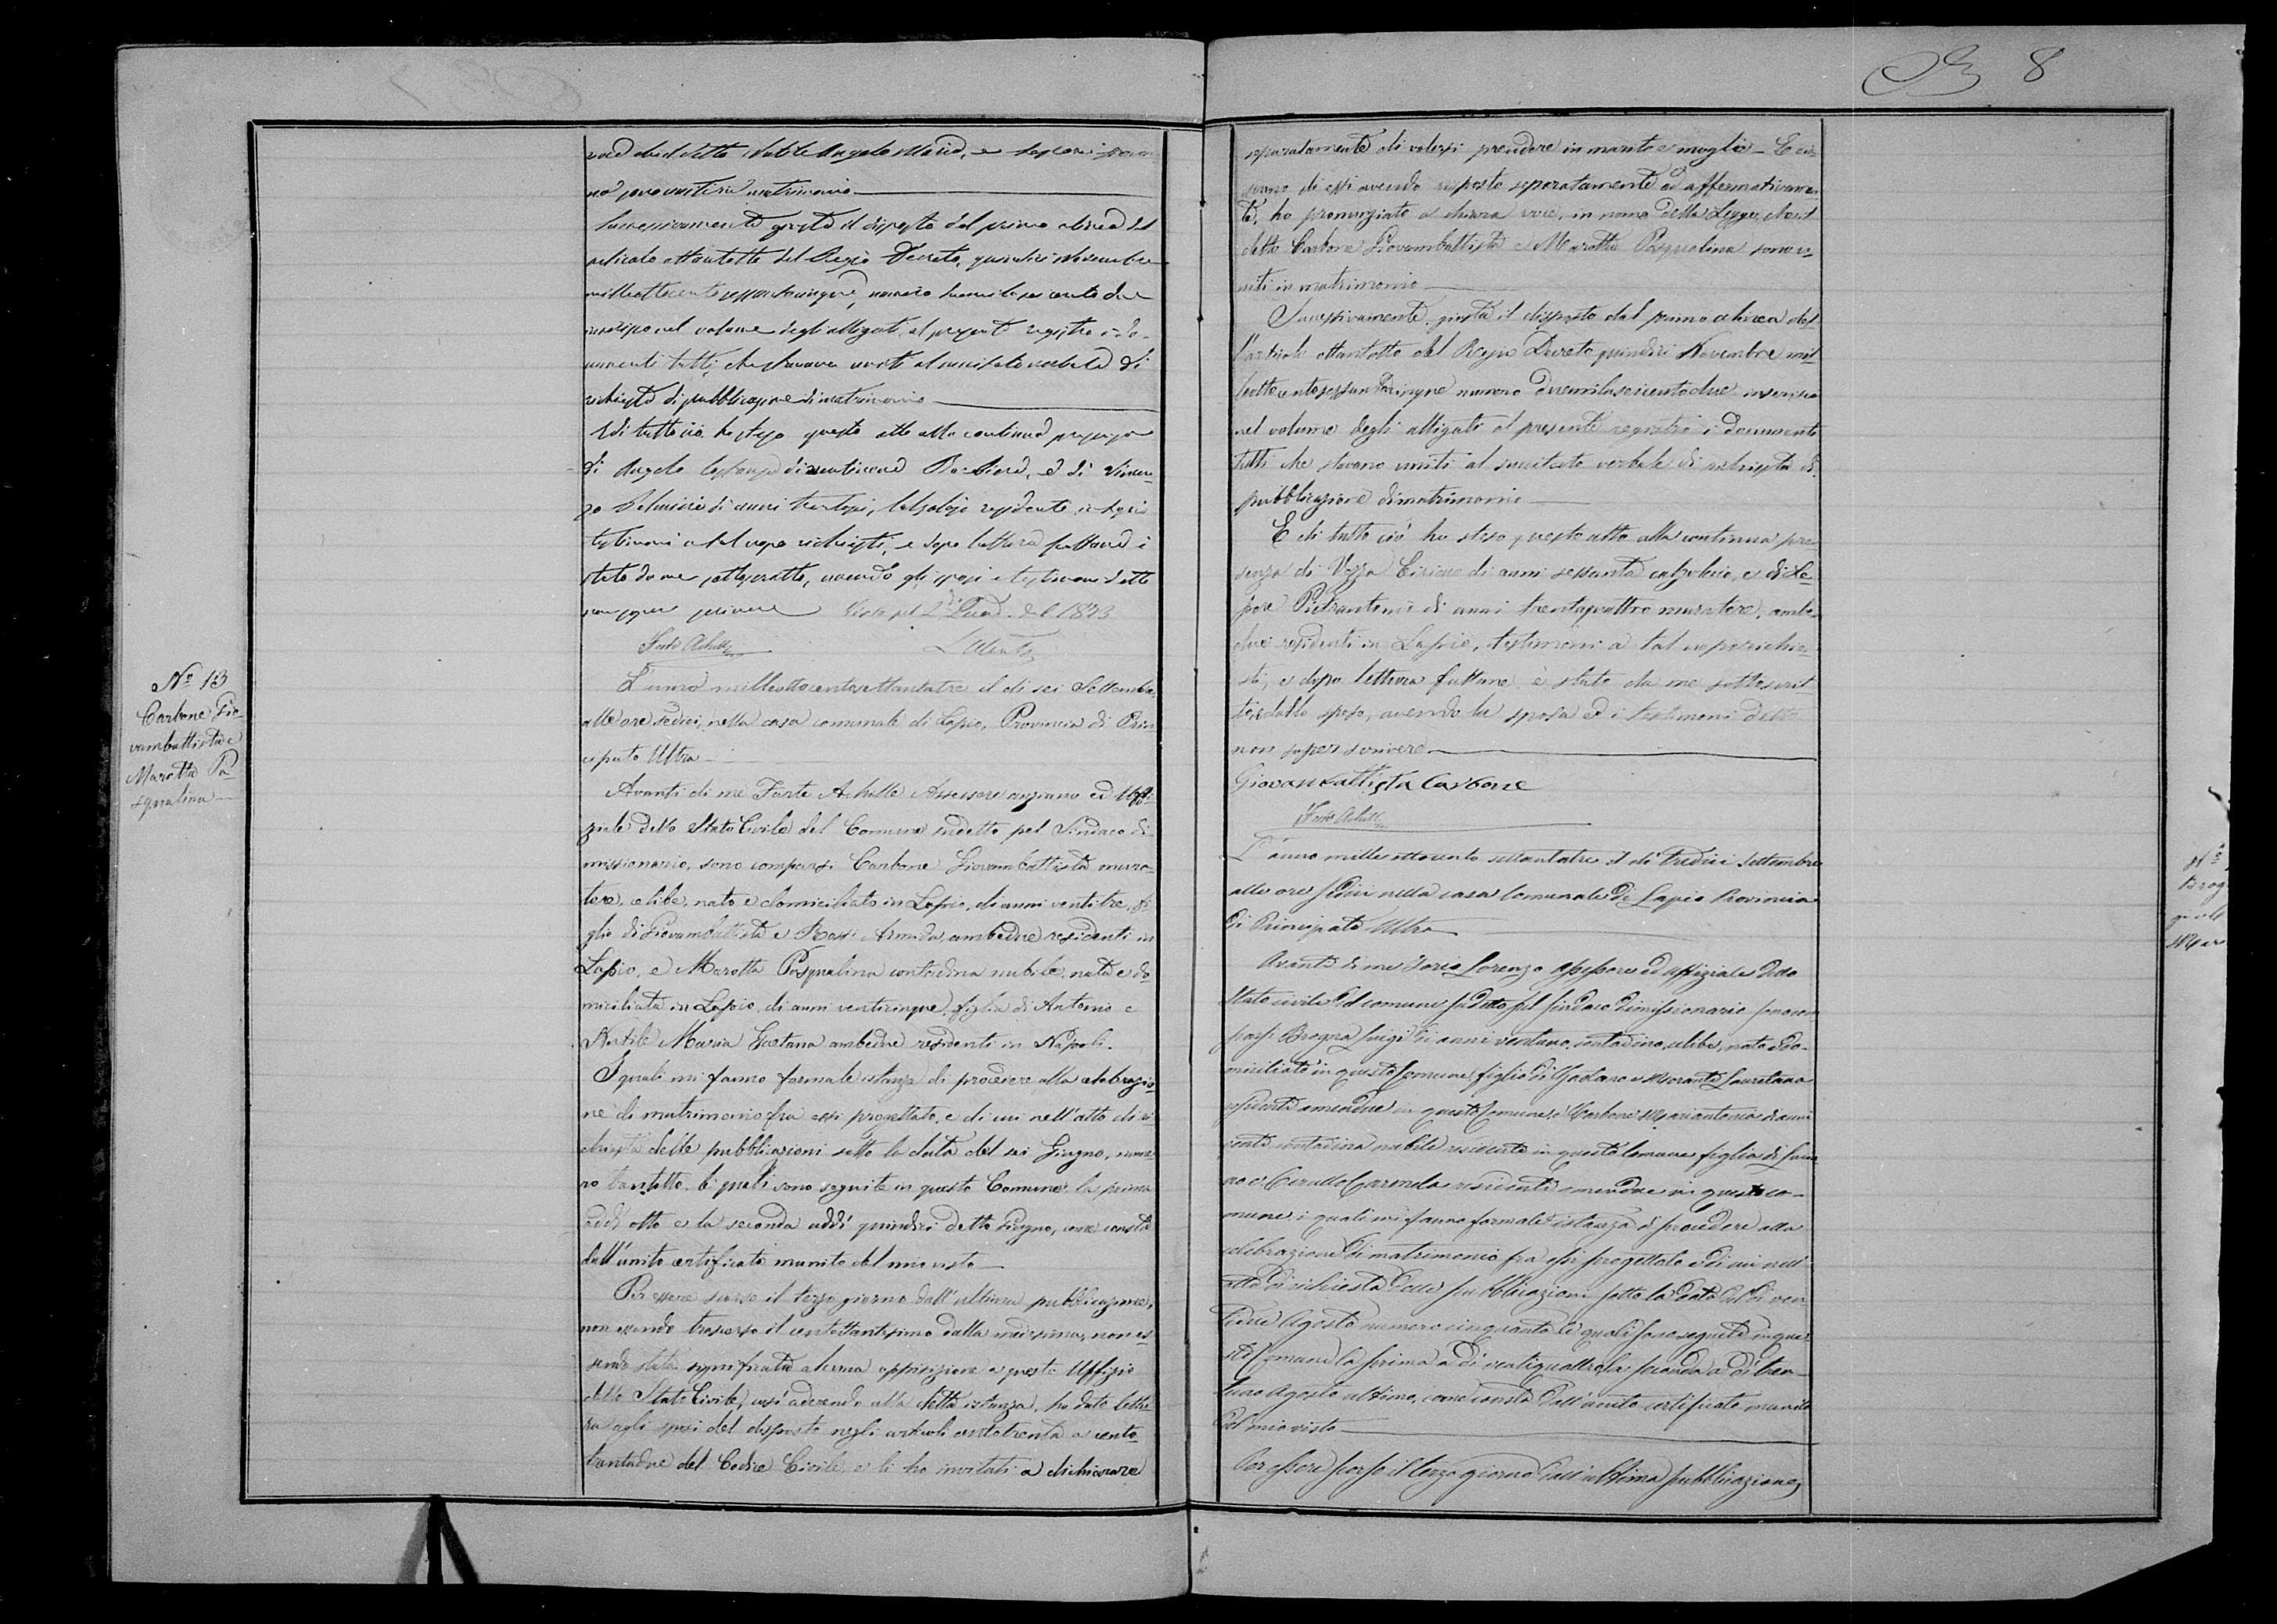 8
voce che il detto Nutile Angelo Maria, e
uniti in matrimonio
Successivamente giusta il disposto dal primo alinea del
articolo ottantotto del Regio Decreto, quindici Novembre
milleottocentosessantacinque, numero duemilaseicento due
inserisco nel volume degli alligati al presente registro i do-
cumenti tutti, che stavano uniti al succitato verbale di
richiesta di pubblicazione di matrimonio
E di tutto ciò ho steso questo atto alla continua presenza
di Angelo di anni Barbiere, e di Vincen-
zo di anni trentasei, Calzolajo residenti in Lapio
testimoni a tal uopo richiesti, e dopo lettura fattane è
stato da me sottoscritto, avendo gli sposi e testimoni detto
non saper scrivere Visto pel 2° Quad. del 1873
Forte Achille
Nº 13
Carbone Gio-
vambattista e
Marotta Pa-
squalina
L'anno milleottocentosettantatre il dì sei Settembre,
alle ore sedici, nella casa comunale di Lapio, Provincia di Prin-
cipato Ultra
Avanti di me Forte Achille Assessore anziano ed Uffi-
ziale dello Stato Civile del Comune sudetto pel Sindaco di-
missionario, sono comparsi Carbone Giovambattista mura-
tore, celibe, nato e domiciliato in Lapio, di anni ventitre, fi-
glio di Giovambattista e Rossi Armida, ambedue residenti in
Lapio, e Marotta Pasqualina contadina nubile, nata e do-
miciliata in Lapio, di anni venticinque, figlia di Antonio e
Nutile Maria Gaetana ambedue residenti in Napoli.
I quali mi fanno formale istanza di procedere alla celebrazio-
ne di matrimonio fra essi progettato, e di cui nell'atto di ri-
chiesta delle pubblicazioni sotto la data del sei Giugno, nume-
ro trentotto, le quali sono seguite in questo Comune, la prima
addì otto e la seconda addì quindici detto Giugno, come consta
dall'unito certificato munito del mio visto
Per essere scorso il terzo giorno dall'ultima pubblicazione,
non essendo trascorso il centottantesimo dalla medesima, non es-
sendo stata significata alcuna opposizione a questo Uffizio
dello Stato Civile, così aderendo alla detta istanza, ho dato lettu-
ra agli sposi del disposto negli articoli centotrenta a cento-
trentadue del Codice Civile, e li ho invitati a dichiarare
separatamente di volersi prendere in marito e moglie - E cia-
scuno di essi avendo risposto separatamente ed affermativamen-
te, ho pronunziato a chiara voce, in nome della Legge, che il
detto Carbone Giovambattista e Marotta Pasqualina sono u-
niti in matrimonio
Successivamente giusta il disposto dal primo alinea del-
l'articolo ottantotto del Regio Decreto quindici Novembre mil-
leottocentosessantacinque numero duemilaseicentodue inserisco
nel volume degli alligati al presente registro i documenti
tutti che stavano uniti al succitato verbale di richiesta di
pubblicazione di matrimonio
E di tutto ciò ho steso questo atto alla continua pre-
senza di Vozza Cirino di anni sessanta calzolaio, e di Le-
pore Pietrantonio di anni trentaquattro muratore, ambe-
due residenti in Lapio, testimoni a tal uopo richie-
sti, e dopo lettura fattane è stato da me sottoscrit-
to e dallo sposo, avendo la sposa ed i testimoni detto
non saper scrivere
Giovanbattista Carbone
Forte Achille
L'anno mille ottocento settantatre il dì tredici Settembre
alle ore sedici nella casa Comunale di Lapio Provincia
di Principato Ultra
Avanti di me Iorio Lorenzo assessore ed uffiziale dello
Stato civile del comune sudetto pel sindaco dimissionario sono com-
parsi Brogna Luigi di anni ventuno, contadino, celibe, nato e do-
miciliato in questo Comune figlio di Gaetano e Morante Lauretana
residenti amendue in questo Comune, e Carbone Mariantonia di anni
venti contadina nubile residente in questo Comune figlia di
e Cirullo residenti amendue in questo co-
mune i quali mi fanno formale istanza di procedere alla
celebrazione di matrimonio fra essi progettato e di cui nell'
atto di richiesta delle pubblicazioni sotto la data del dì ven-
tidue Agosto numero cinquanta le quali sono seguite in que-
sto Comune la prima a dì ventiquattro la seconda a dì tren-
tuno Agosto ultimo, come consta dall'unito certificato munito
del mio visto
Per essere scorso il terzo giorno dall'ultima pubblicazione,
Nº
Brog